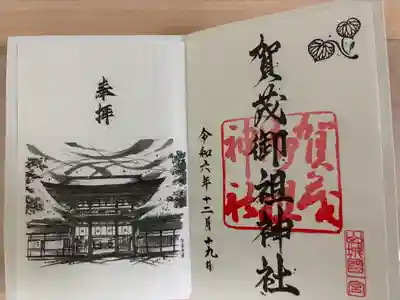 賀茂御祖神社
賀茂
御祖
神社
令和六年十二月十九日
奉拝